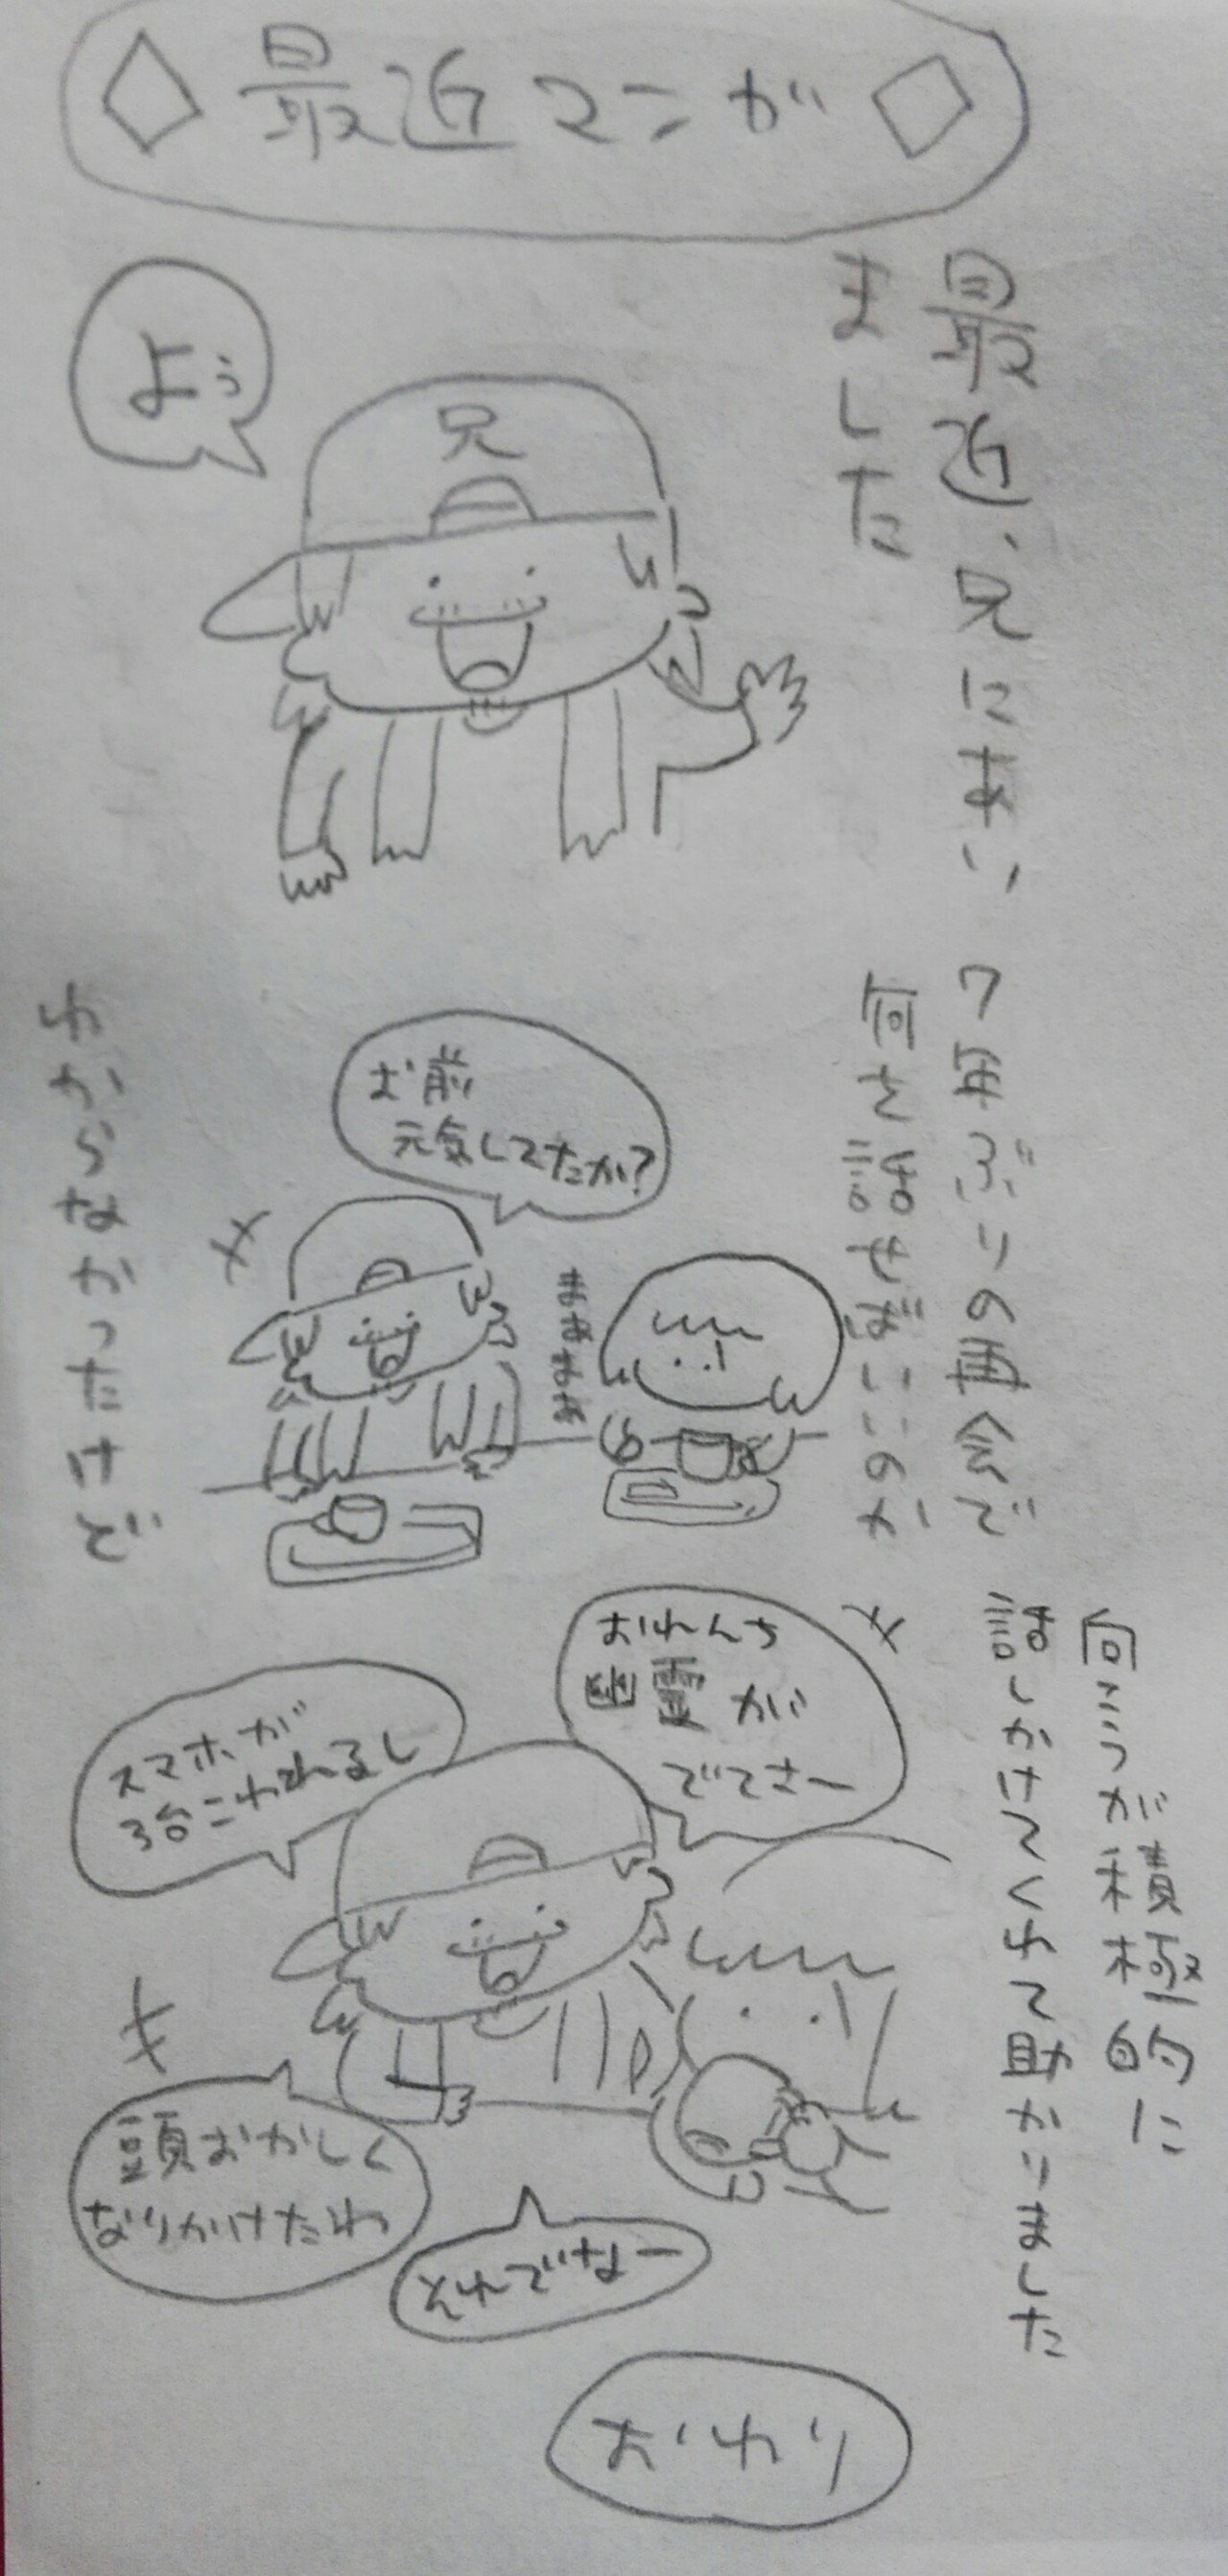 ◇最近マンガ◇
最近、兄にあい
ました
よぅ
兄
7年ぶりの再会で
何を話せばいいのか
お前
元気してたか?
まあまあ
わからなかったけど
向こうが積極的に
話しかけてくれて助かりました
おれんち
幽霊が
でてさー
スマホが
3台こわれるし
頭おかしく
なりかけたわ
それでなー
おわり